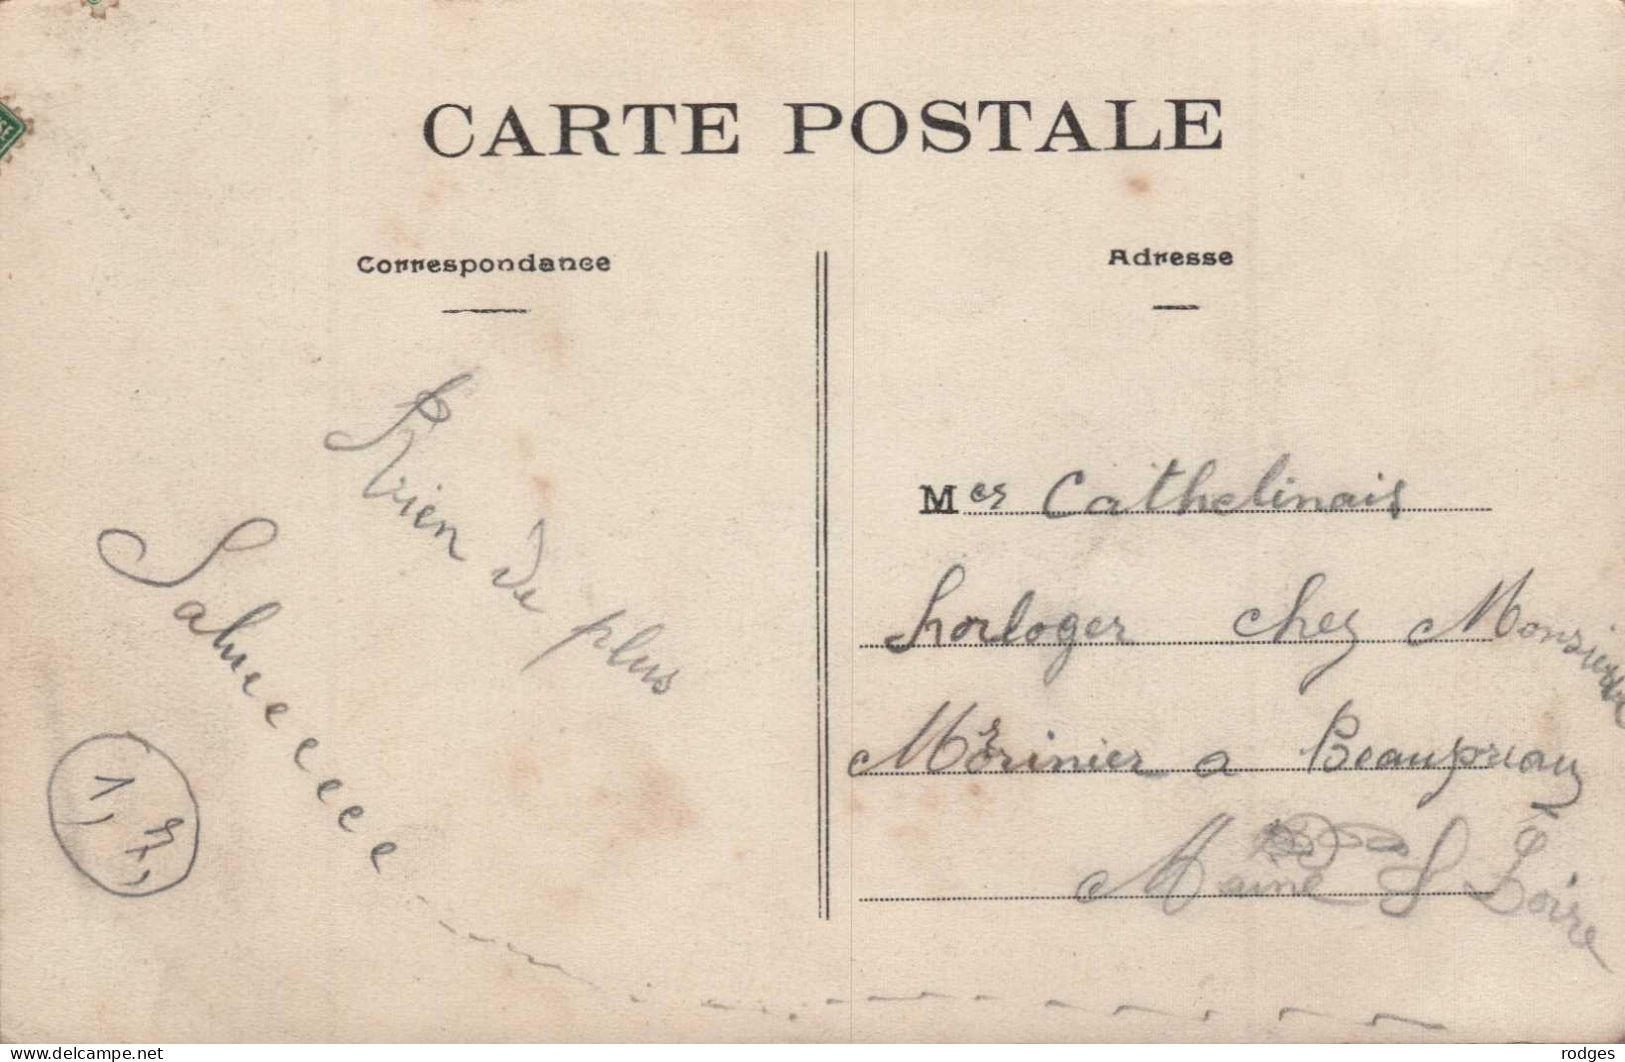 CARTE POSTALE
Correspondance
Adresse
Rien de plus
Salueeeeeee
1,7,
Mes Cathelinais
horloger chez Monsieur
Morinier a Beaupreau
Maine & Loire
delcampe.net
rodges